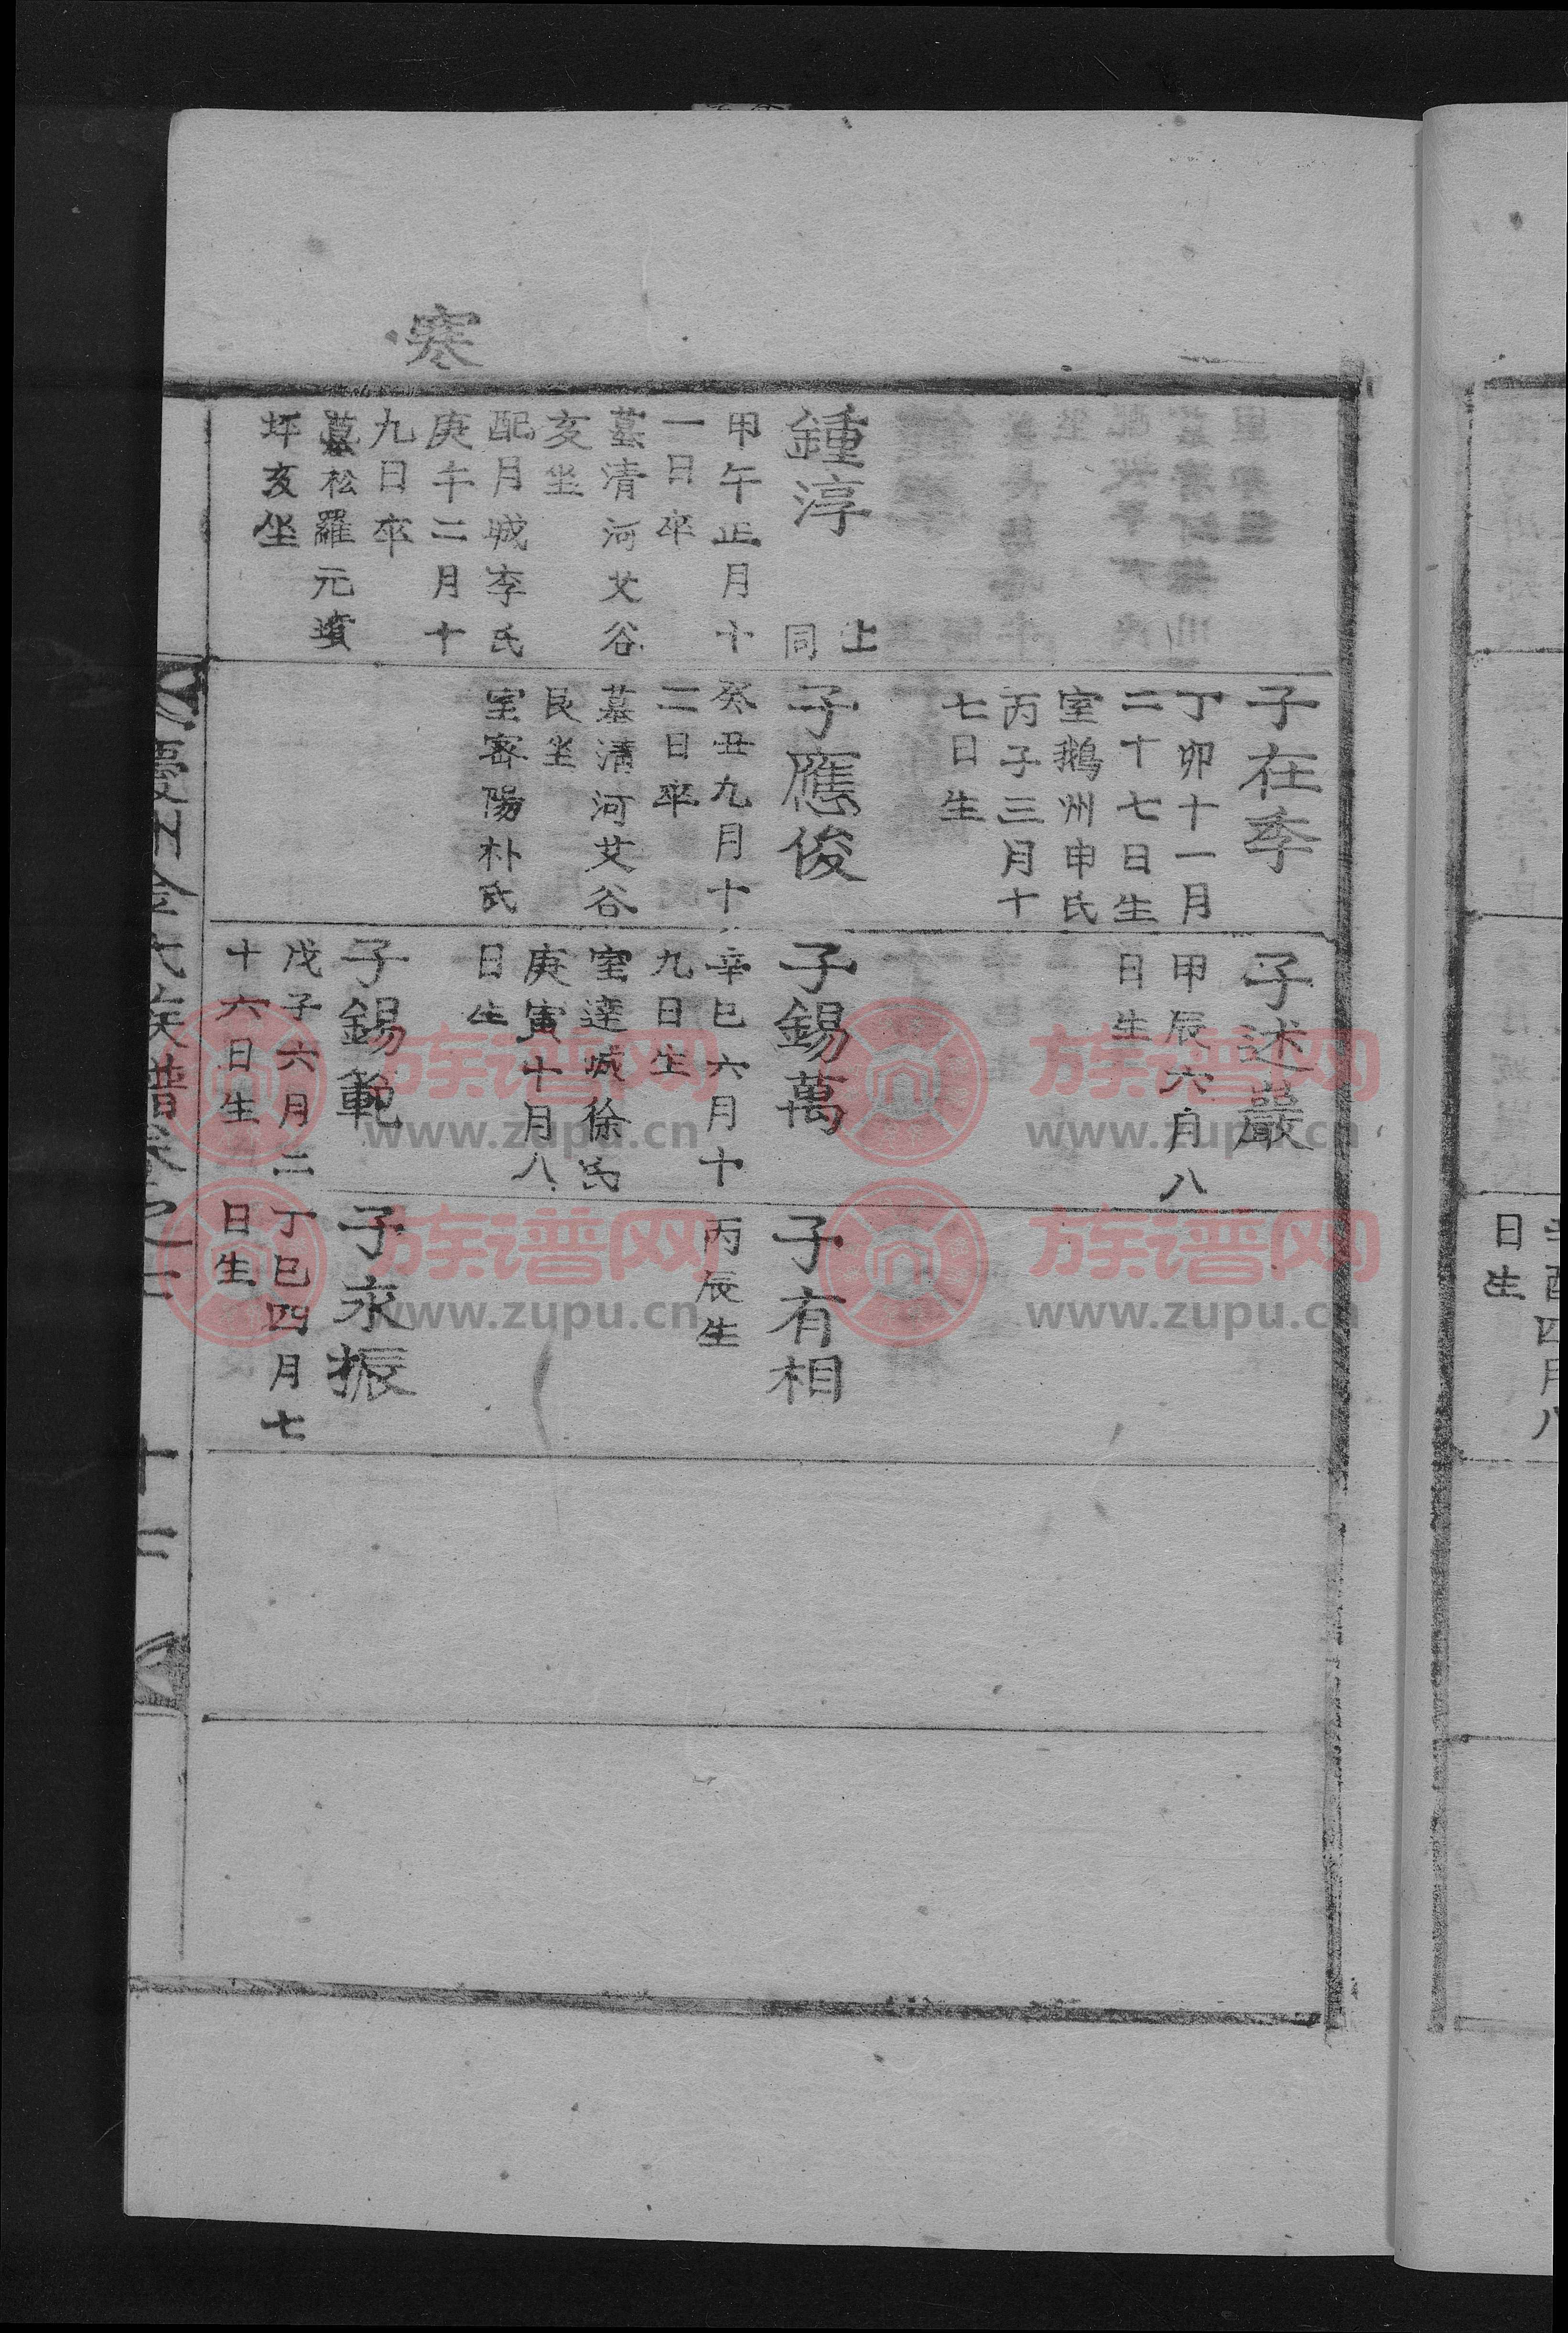 寒
鍾淳
上
同
甲午正月十
一日卒
墓清河艾谷
亥坐
配月城李氏
庚午二月十
九日卒
墓松羅元墳
坪亥坐
子在季
丁卯十一月
二十七日生
室鵝州申氏
丙子三月十
七日生
子應俊
癸丑九月十
二日卒
墓清河艾谷
艮坐
室密陽朴氏
子述巖
甲辰六月八
日生
子錫萬
辛巳六月十
九日生
室達城徐氏
庚寅十月八
日生
子錫範
戊子六月二
十六日生
子有相
丙辰生
子永振
丁巳四月七
日生
慶州金氏族譜卷之二
十二
酉四月八
日生
族谱网
www.zupu.cn
族谱网
www.zupu.cn
族谱网
www.zupu.cn
族谱网
www.zupu.cn